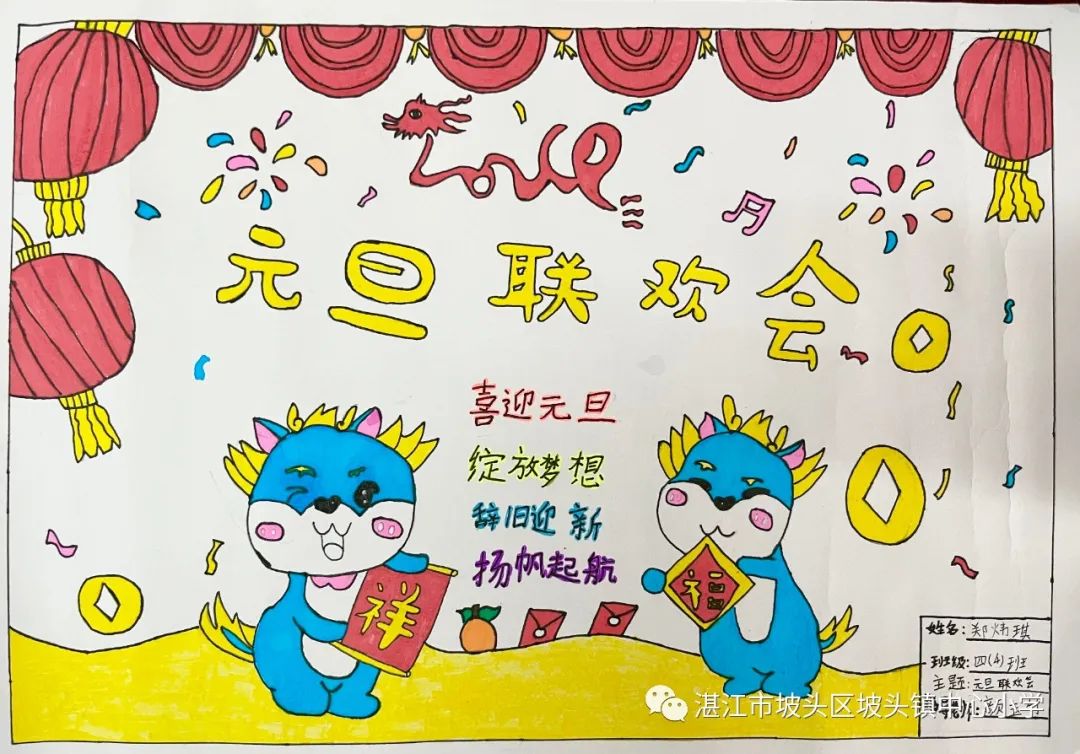 元旦联欢会
喜迎元旦
绽放梦想
辞旧迎新
扬帆起航
祥
福
姓名:郑炜琪
班级:四(4)班
主题:元旦联欢会
湛江市坡头区坡头镇中心小学